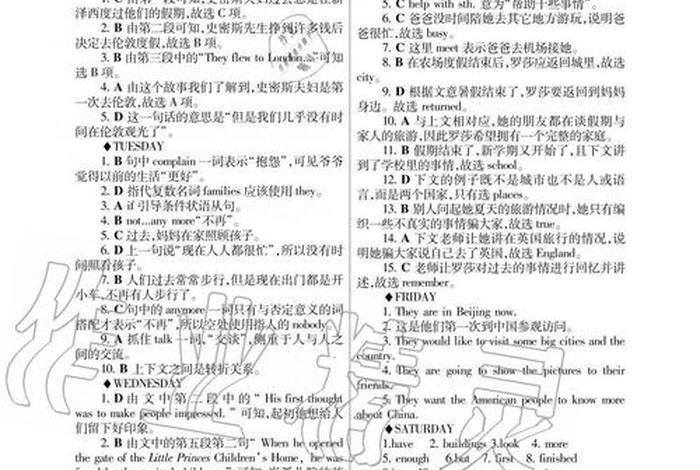 泽西度过他们的假期,故选 C 项。
2. B 由第二段可知,史密斯先生挣到许多钱后
决定去伦敦度假,故选 B 项。
3. B 由第三段中的“They flew to London...”可知
选 B 项。
4. A 由这个故事我们了解到,史密斯夫妇是第
一次去伦敦,故选 A 项。
5. D 这一句话的意思是“但是我们几乎没有时
间在伦敦观光了”。
♦TUESDAY
1. B 句中 complain 一词表示“抱怨”,可见爷爷
觉得以前的生活“更好”。
2. D 指代复数名词 families 应该使用 they。
3. A if 引导条件状语从句。
4. B not...any more“不再”。
5. C 过去,妈妈在家照顾孩子。
6. D 上一句说“现在人人都很忙”,所以没有时
间照看孩子。
7. B 人们过去常常步行,但是现在出门都是开
小车,不再有人步行了。
8. C 句中的 anymore 一词只有与否定意义的词
搭配才表示“不再”,所以空处使用指人的 nobody。
9. A 抓住 talk 一词,“交谈”,侧重于人与人之
间的交流。
10. B 上下文之间是转折关系。
♦WEDNESDAY
1. D 由文中第二段中的“His first thought
was to make people impressed.”可知,起初他想给人
们留下好印象。
2. B 由文中的第五段第二句“When he opened
the gate of the Little Princes Children's Home, he was
5. C help with sth. 意为“帮助干某事情”。
6. C 爸爸没时间陪她去其它地方游玩,说明爸
爸很忙,故选 busy。
7. C 这里 meet 表示爸爸去机场接她。
8. B 在农场度假结束后,罗莎应返回城里,故选
city。
9. D 根据文意暑假结束了,罗莎要返回到妈妈
身边。故选 returned。
10. A 与上文相对应,她的朋友都在谈假期与
家人的旅游,因此罗莎希望拥有一个完整的家庭。
11. B 假期结束了,新学期又开始了,且下文讲
到了学校里的事情,故选 school。
12. D 下文的例子既不是城市也不是人或语
言,而是两个国家,只有选 places。
13. B 别人问起她夏天的旅游情况时,她只有编
织一些不真实的事情骗大家,故选 true。
14. A 下文老师让她讲在英国旅行的情况,说
明她骗大家说自己去了英国,故选 England。
15. C 老师让罗莎对过去的事情进行回忆并讲
述,故选 remember。
♦FRIDAY
1. They are in Beijing now.
2. 这是他们第一次到中国参观访问。
3. They would like to visit some big cities and the
country.
4. They are going to show the pictures to their
friends.
5. They want the American people to know more
about China.
♦SATURDAY
1.have 2. buildings 3.look 4. more
5. enough 6.but 7. first 8. finished
作业精灵